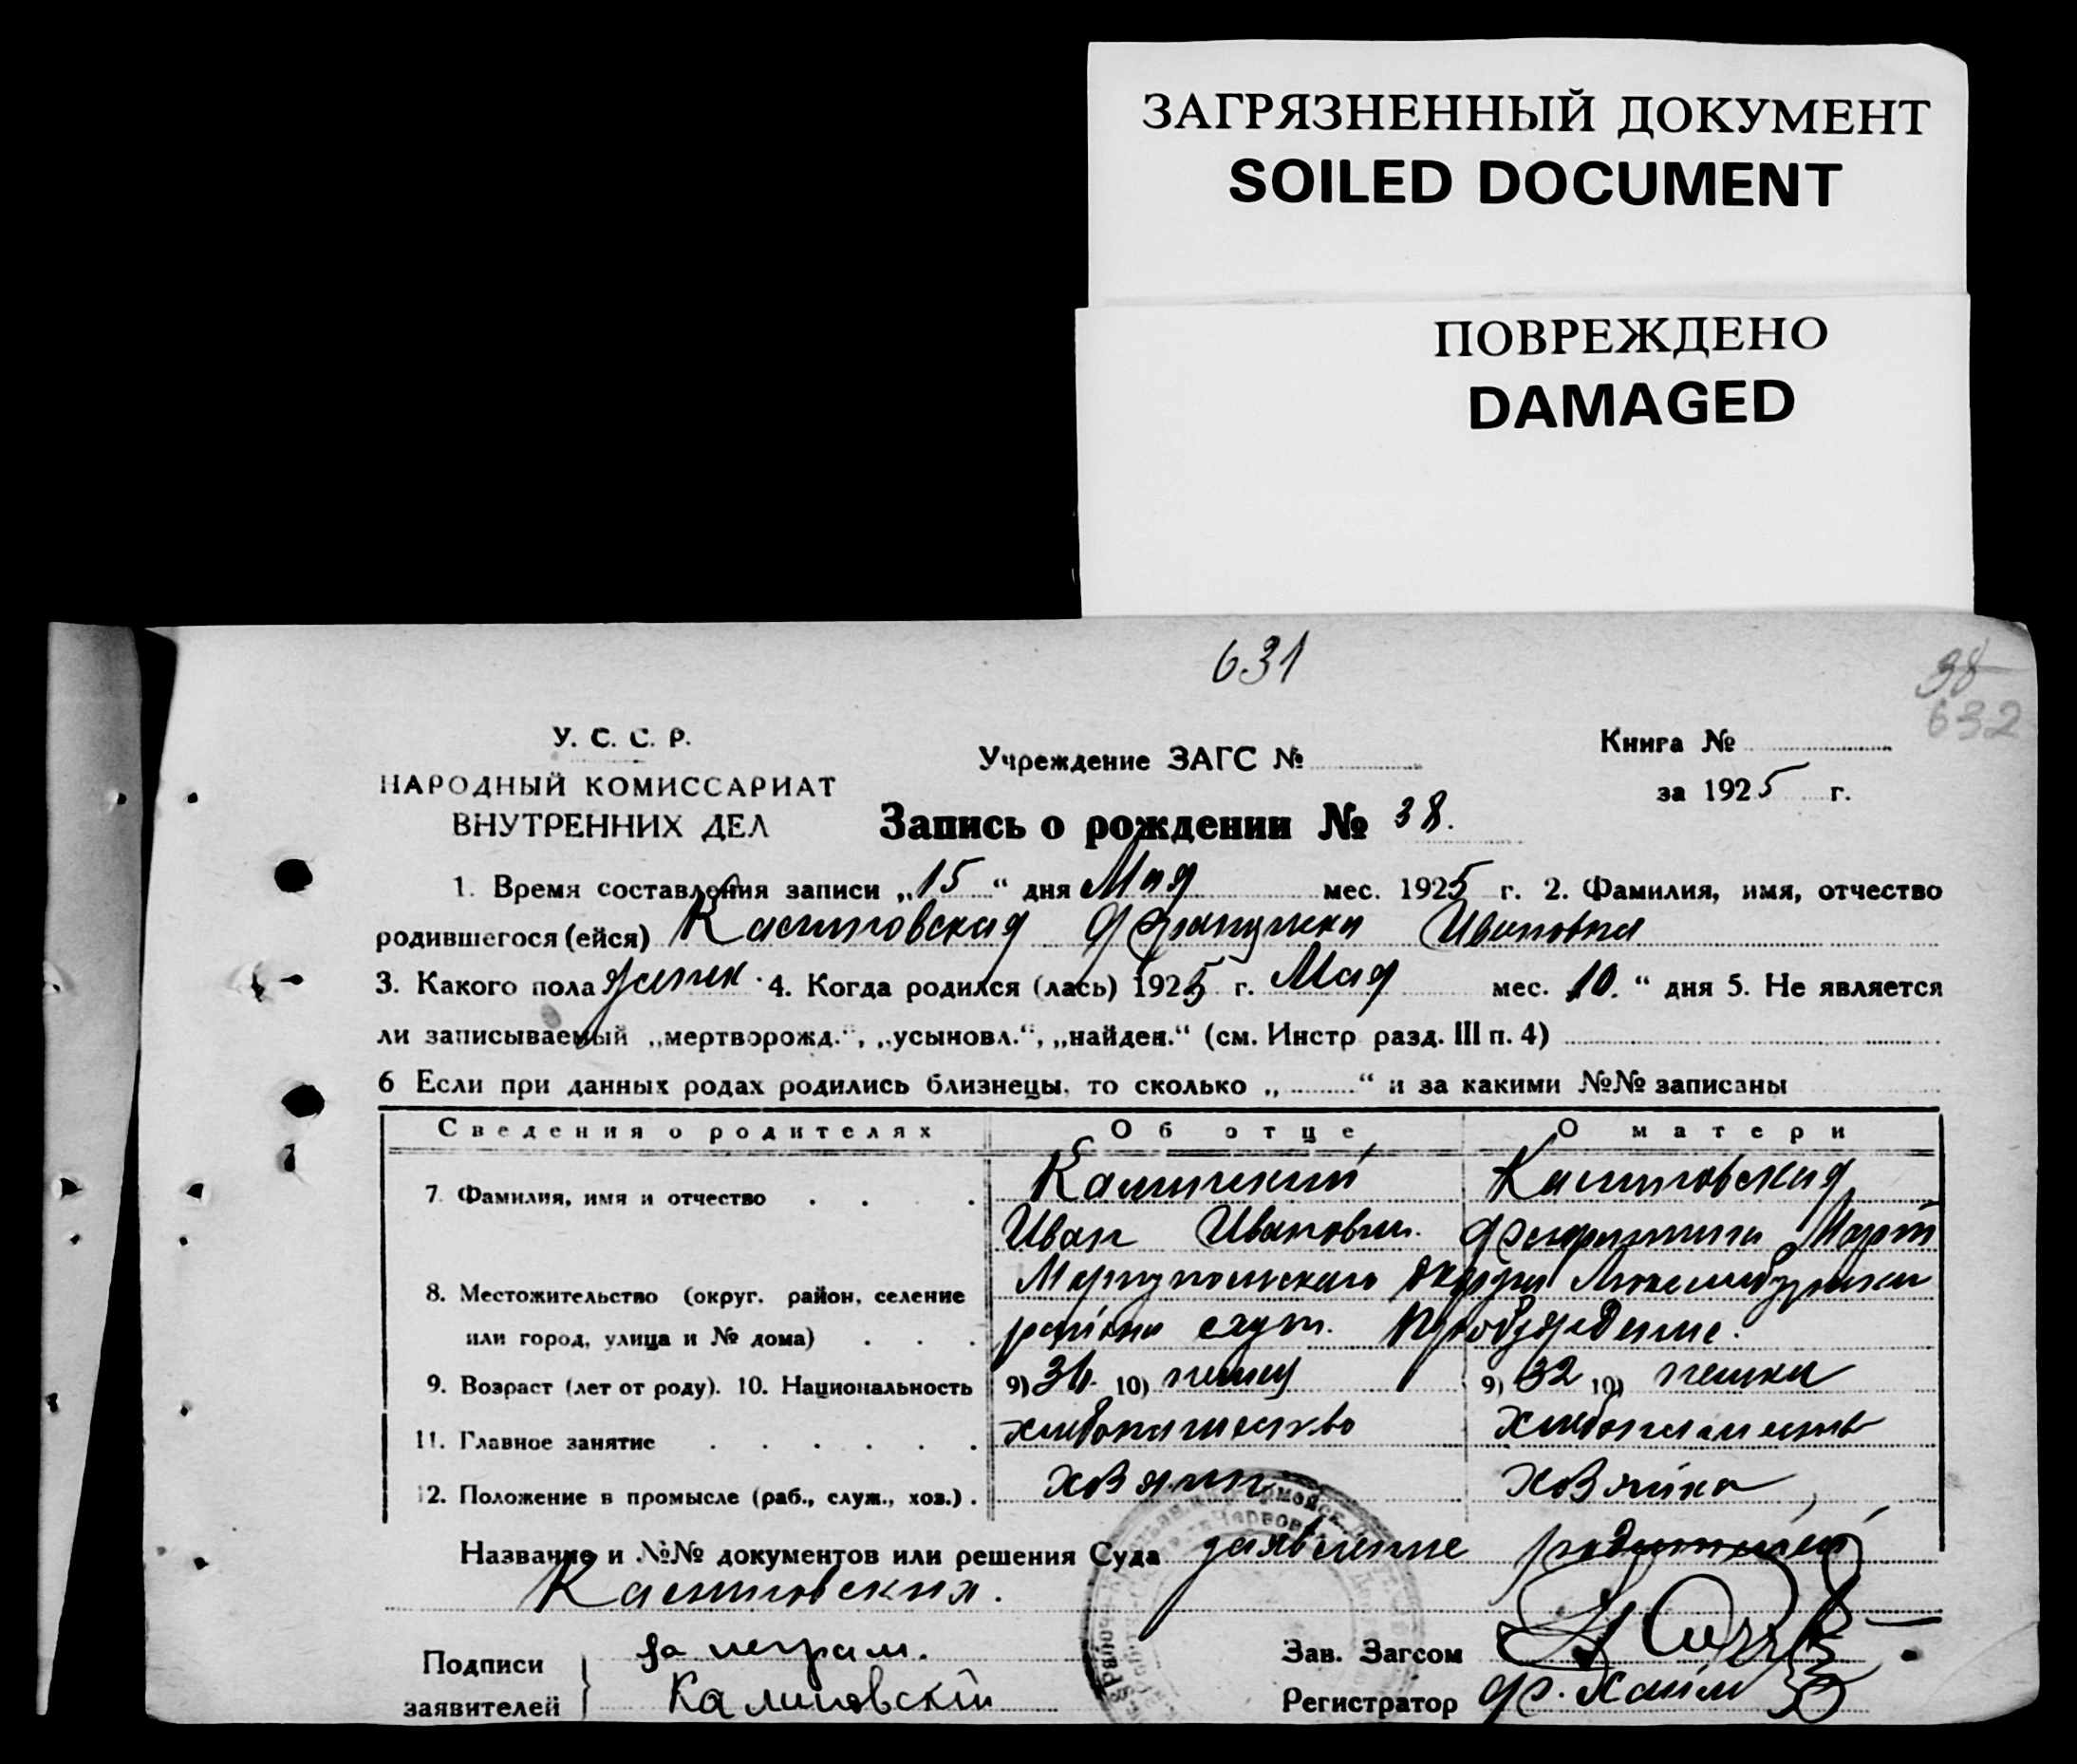 ЗАГРЯЗНЕННЫЙ ДОКУМЕНТ
SOILED DOCUMENT
ПОВРЕЖДЕНО
DAMAGED
631
38
632
У. С. С. Р.
НАРОДНЫЙ КОМИССАРИАТ
ВНУТРЕННИХ ДЕЛ
Учреждение ЗАГС №
Книга №
за 1925 г.
Запись о рождении № 38.
1. Время составления записи „15“ дня Мая мес. 1925 г. 2. Фамилия, имя, отчество
родившегося (ейся) Ивановна
3. Какого пола женск. 4. Когда родился (лась) 1925 г. Мая мес. 10. “ дня 5. Не является
ли записываемый „мертворожд.“, „усыновл.“, „найден.“ (см. Инстр разд. III п. 4)
6 Если при данных родах родились близнецы, то сколько „ “ и за какими №№ записаны
Сведения о родителях Об отце О матери
7. Фамилия, имя и отчество
Иван Иванович.
8. Местожительство (округ. район, селение
Мариупольского округа Люксембургски
или город, улица и № дома)
района
9. Возраст (лет от роду). 10. Национальность 9) 36. 10) немец 9) 32 10) немка
11. Главное занятие хлебопашество
12. Положение в промысле (раб., служ., хоз.). хозяин хозяйка
Название и №№ документов или решения Суда заявление родителей
Подписи
заявителей
за неграм.
Калиновскій
Зав. Загсом
Регистратор